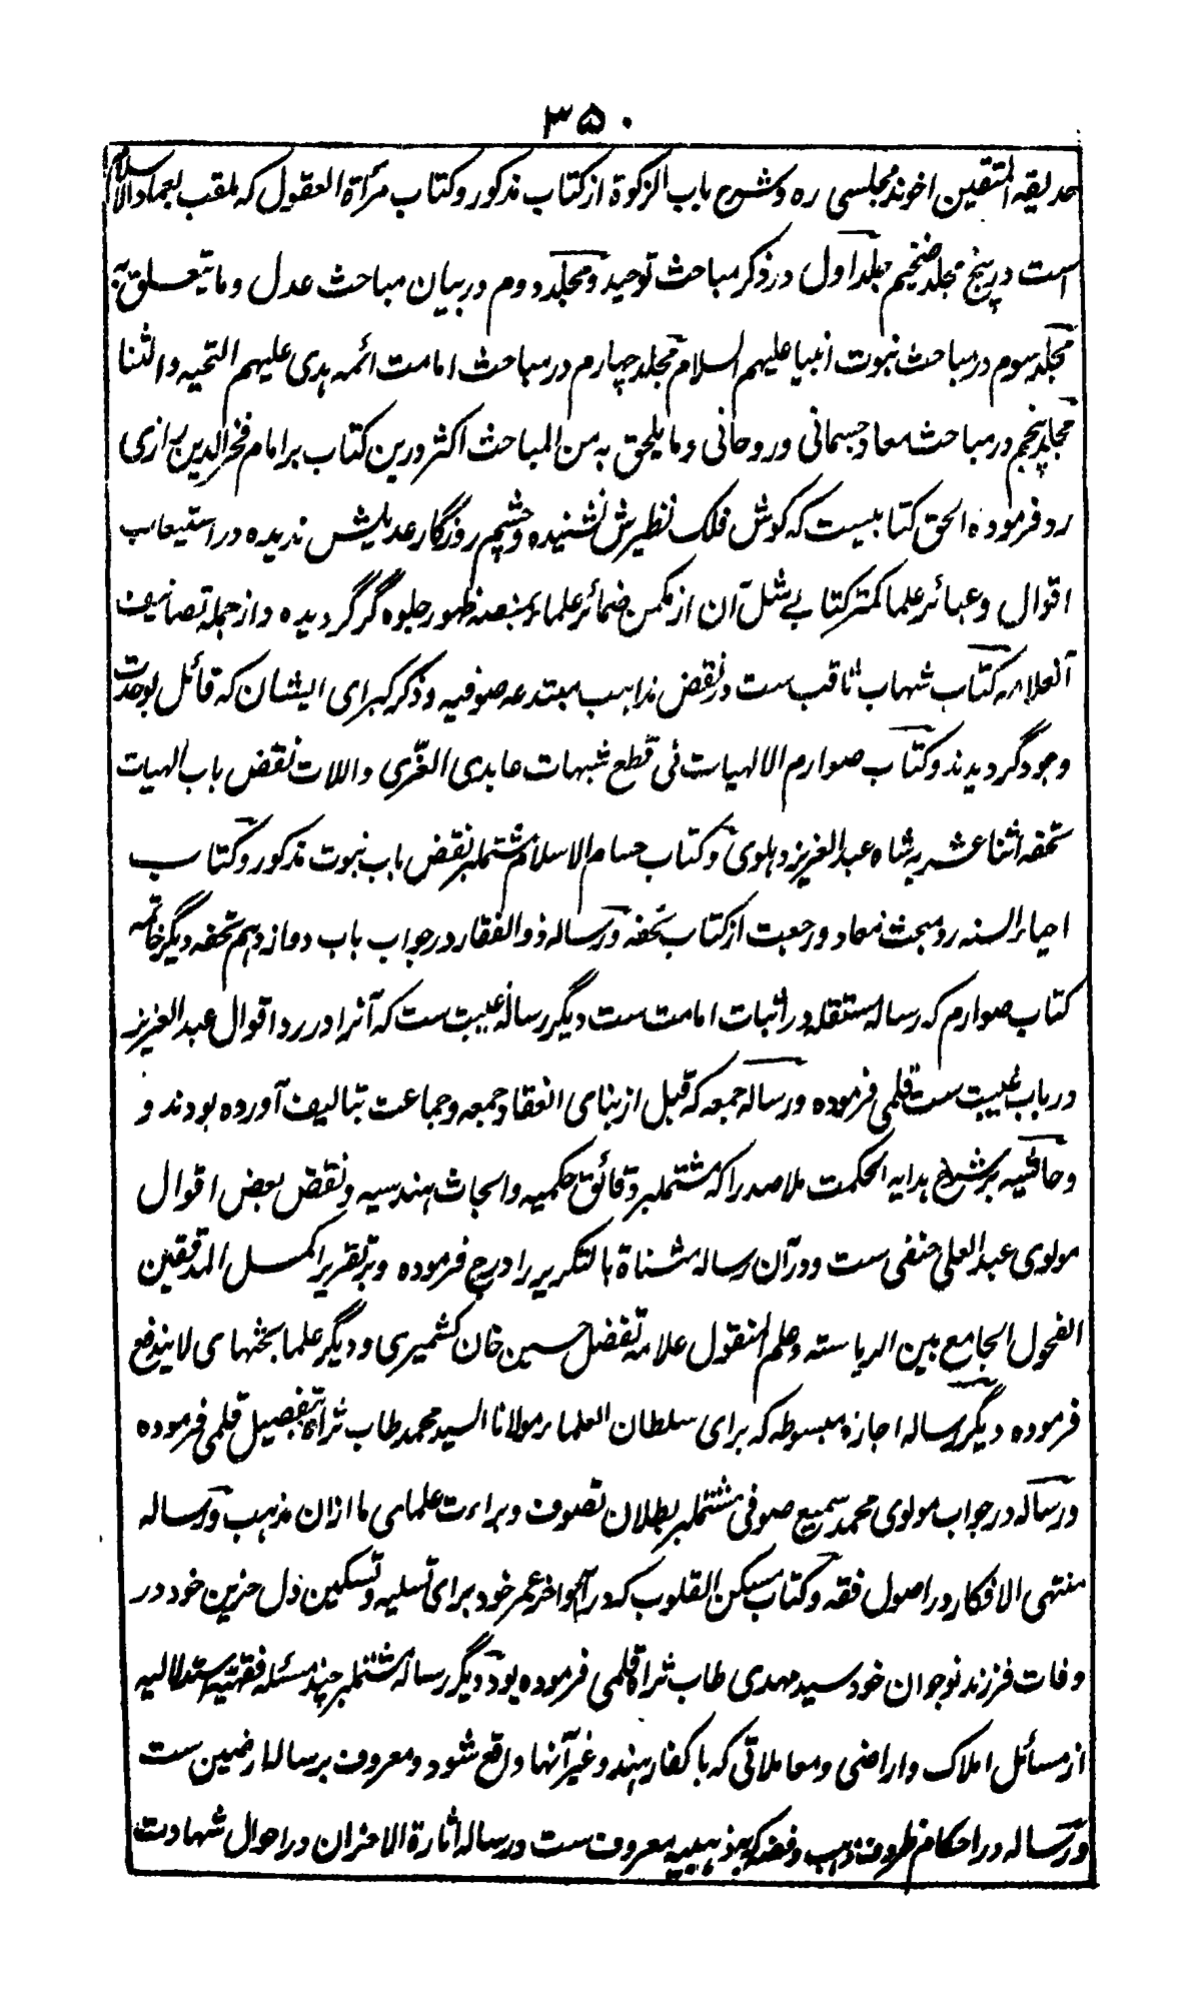 ۳۵۰
حدیقه المتقین اخوند مجلسی ره و شرح باب الزکوة از کتاب مذکور و کتاب مرأة العقول که ملقب بعماد الاسلام
است در پنج مجلد ضخیم جلد اول در ذکر مباحث توحید و مجلد دوم در بیان مباحث عدل و ما یتعلق به
مجلد سوم در مباحث نبوت انبیا علیهم السلام مجلد چهارم در مباحث امامت ائمه هدی علیهم التحیه و الثنا
مجلد پنجم در مباحث معاد جسمانی و روحانی و ما یلحق به من المباحث اکثر درین کتاب بر امام فخر الدین رازی
رد فرموده الحق کتابیست که گوش فلک نظیرش نشنیده و چشم روزگار عدیلش ندیده در استیعاب
اقوال و عبائر علما کمتر کتابے مثل آن از مکمن ضمائر علماء بمنصه ظهور جلوه گر گردیده و از جمله تصانیف
آنعلامه کتاب شهاب ثاقب ست در نقض مذاهب مبتدعه صوفیه و ذکر کبرای ایشان که قائل بوحدت
وجود گردیدند و کتاب صوارم الالهیات فی قطع شبهات عابدی العزّی و اللات نقض باب الهیات
تحفه اثنا عشریه شاه عبد العزیز دهلوی و کتاب حسام الاسلام مشتملبر نقض باب نبوت مذکور و کتاب
احیاء السنه رد مبحث معاد و رجعت از کتاب تحفه و رساله ذو الفقار در جواب باب دوازدهم تحفه دیگر خاتمه
کتاب صوارم که رساله مستقله در اثبات امامت ست دیگر رساله غیبت ست که آنرا در رد اقوال عبد العزیز
در باب غیبت ست قلمی فرموده و رساله جمعه که قبل از بنای انعقاد جمعه و جماعت بتالیف آورده بودند و
و حاشیه بر شرح هدایه الحکمت ملا صدرا که مشتملبر دقائق حکمیه و ابحاث هندسیه و نقض بعض اقوال
مولوی عبد العلی حنفی ست و در آن رساله مثناة بالتکریر را درج فرموده و بر تقریر اکمل المدققین
الفحول الجامع بین الریاسته و علم المنقول علامه تفضل حسین خان کشمیری و دیگر علما بحثهای لا یندفع
فرموده دیگر رساله اجازه مبسوطه که برای سلطان العلماء مولانا السید محمد طاب ثراه بتفصیل قلمی فرموده
و رساله در جواب مولوی محمد سمیع صوفی مشتملبر بطلان تصوف و براءت علمای ما ازان مذهب و رساله
منتهی الافکار در اصول فقه و کتاب مسکن القلوب که در اواخر عمر خود برای تسلیه و تسکین دل حزین خود در
وفات فرزند نوجوان خود سید مهدی طاب ثراه قلمی فرموده بود دیگر رساله مشتملبر چند مسئله فقهیه استدلالیه
از مسائل املاک و اراضی و معاملاتی که با کفار هند و غیر آنها واقع شود و معروف برساله ارضین ست
و رساله در احکام ظروف ذهب و فضه که بذهبیه معروف ست و رساله اثارة الاحزان در احوال شهادت